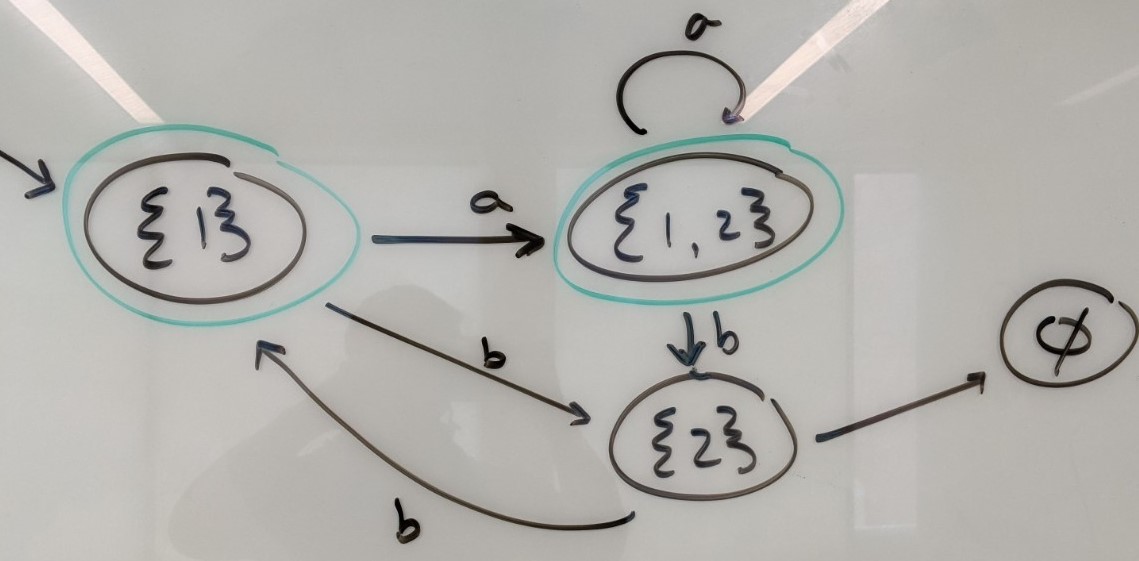 a
{1}
a
{1,2}
b
b
{2}
∅
b